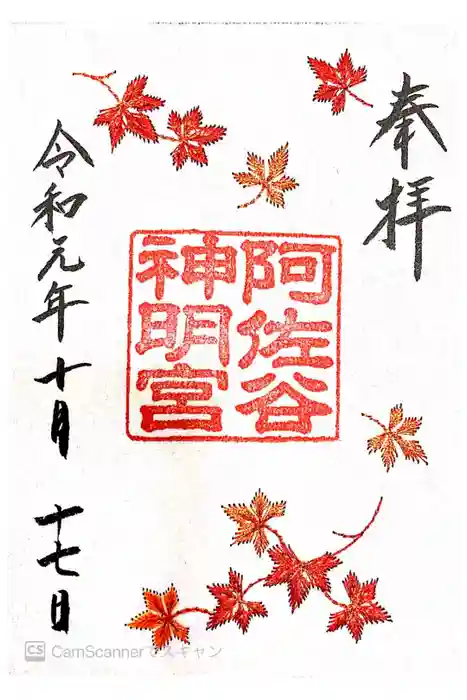 奉拝
阿佐谷
神明宮
令和元年十月十七日
CS CamScannerでスキャン